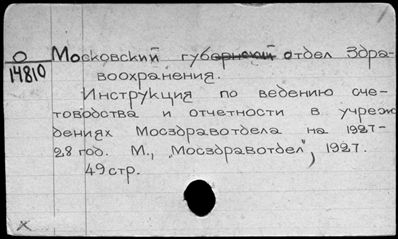 О
14810
Московский губернский отдел Здра-
воохранения.
Инструкция по ведению сче-
товодства и отчетности в учреж
дениях Мосздравотдела на 1927-
28 год. М., "Мосздравотдел", 1927.
49 стр.
x